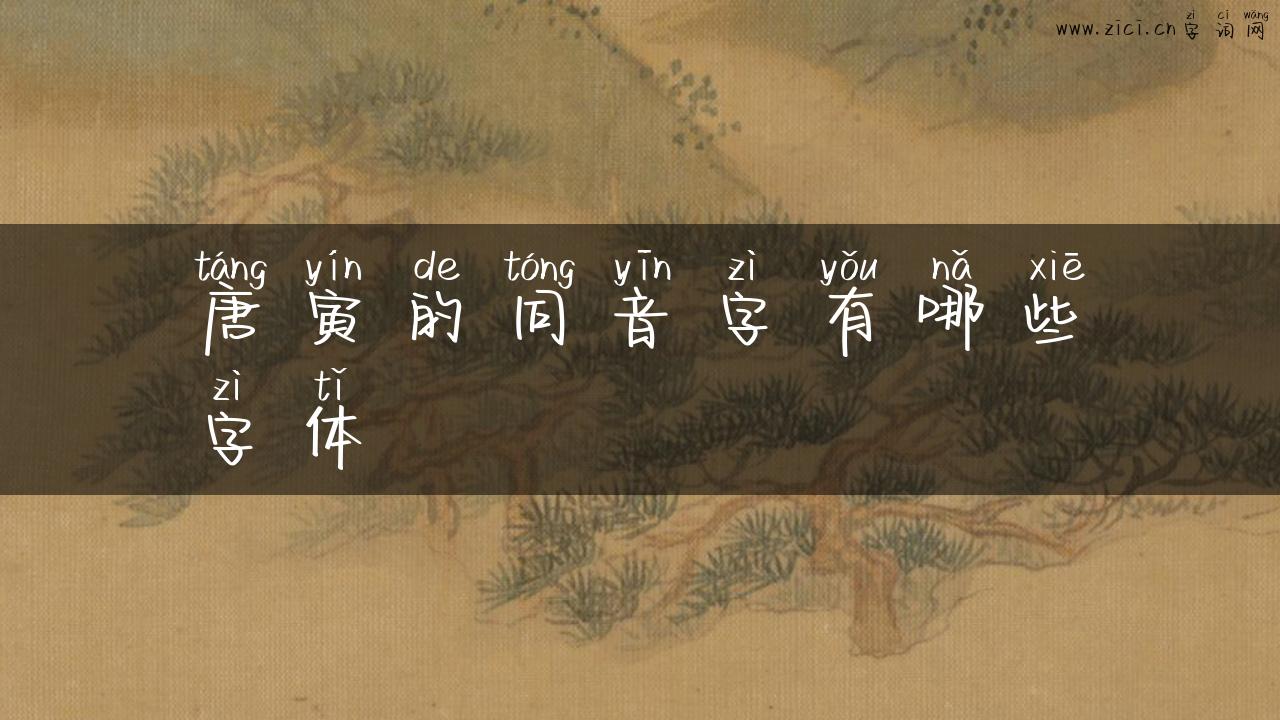 zì cí wǎng
www.zici.cn 字 词 网
táng yín de tóng yīn zì yǒu nǎ xiē
唐 寅 的 同 音 字 有 哪 些
zì tǐ
字 体